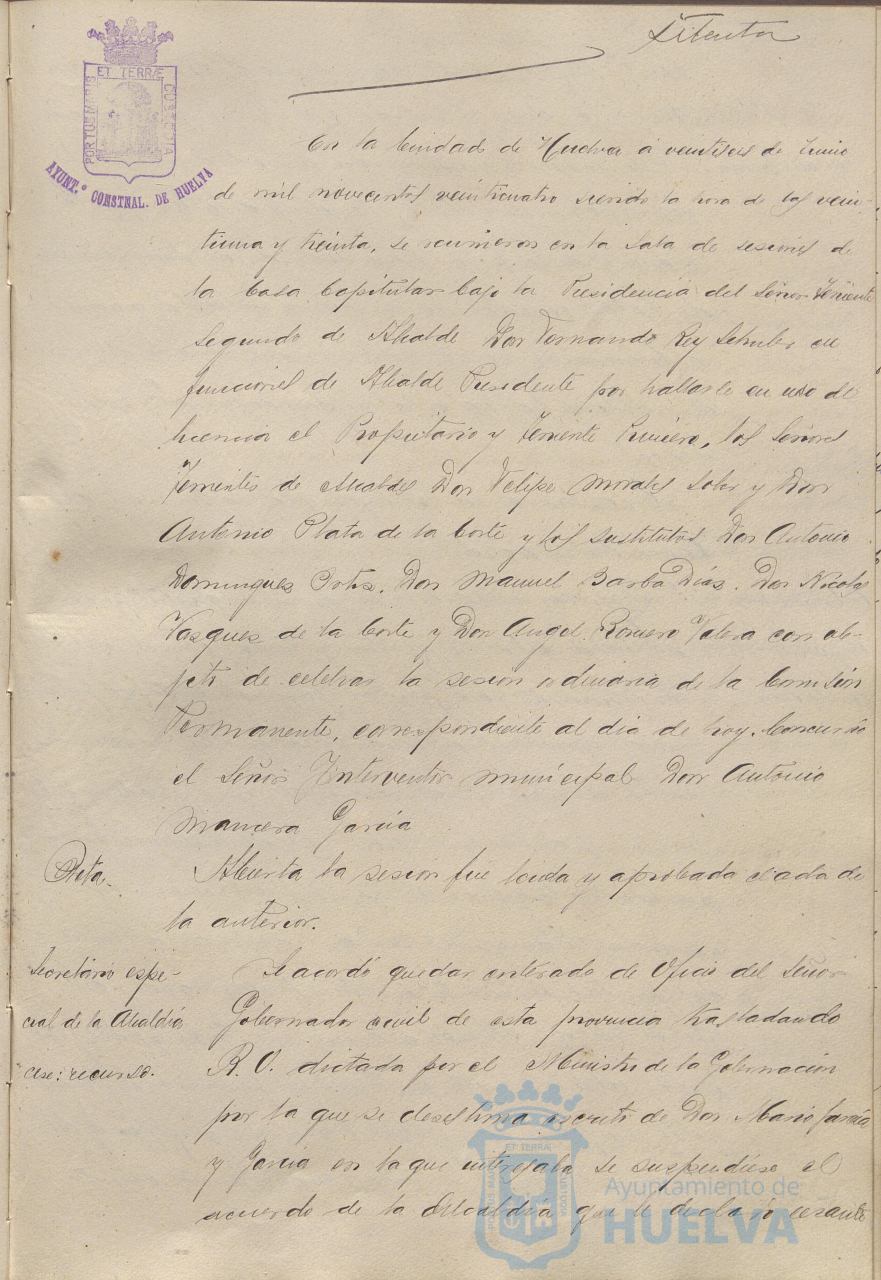 Setenta
PORTUS MARIS ET TERRÆ CUSTODIA
AYUNT.º CONSTNAL. DE HUELVA
En la Ciudad de Huelva á veintiseis de Junio
de mil novecientos veinticuatro siendo la hora de las vein-
tiuna y treinta, se reunieron en la Sala de sesiones de
la Casa Capitular bajo la Presidencia del Señor Teniente
segundo de Alcalde Don Fernando Rey en
funciones de Alcalde Presidente por hallarse en uso de
licencia el Propietario y Teniente Primero, los Señores
Tenientes de Alcaldes Don Felipe Morales y Don
Antonio Plata de la Corte y los sustitutos Don Antonio
Dominguez Ortiz, Don Manuel Barba Días, Don Nicolas
Vasques de la Corte y Don Angel Romero Valera con ob-
jeto de celebrar la sesion ordinaria de la Comisión
Permanente, correspondiente al dia de hoy. Concurrió
el Señor Interventor municipal Don Antonio
Mancera García
Acta.
Abierta la sesion fue leida y aprobada el acta de
la anterior.
Secretario espe-
cial de la Alcaldía
cese: recurso.
Se acordó quedar enterado de Oficio del Señor
Gobernador civil de esta provincia trasladando
R. O. dictada por el Ministro de la Gobernación
por la que se desestima escrito de Don Mario García
y Garcia en la que interesaba se suspendiese el
acuerdo de la Alcaldía que le declaró cesante
ET TERRÆ
Ayuntamiento de
HUELVA